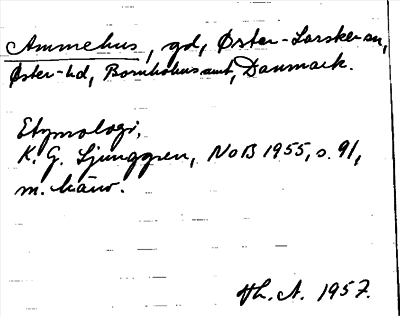 Ammehus, gd, Øster-Larsker sn,
Øster-hd, Bornholms amt, Danmark.
Etymologi,
K. G. Ljunggren, NoB 1955, s. 91,
m. hänv.
Th. A. 1957.